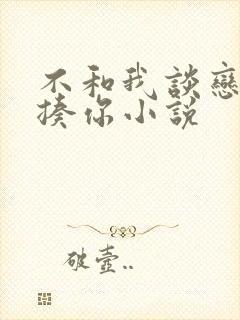 不和我談戀
揍你小说
破壺..